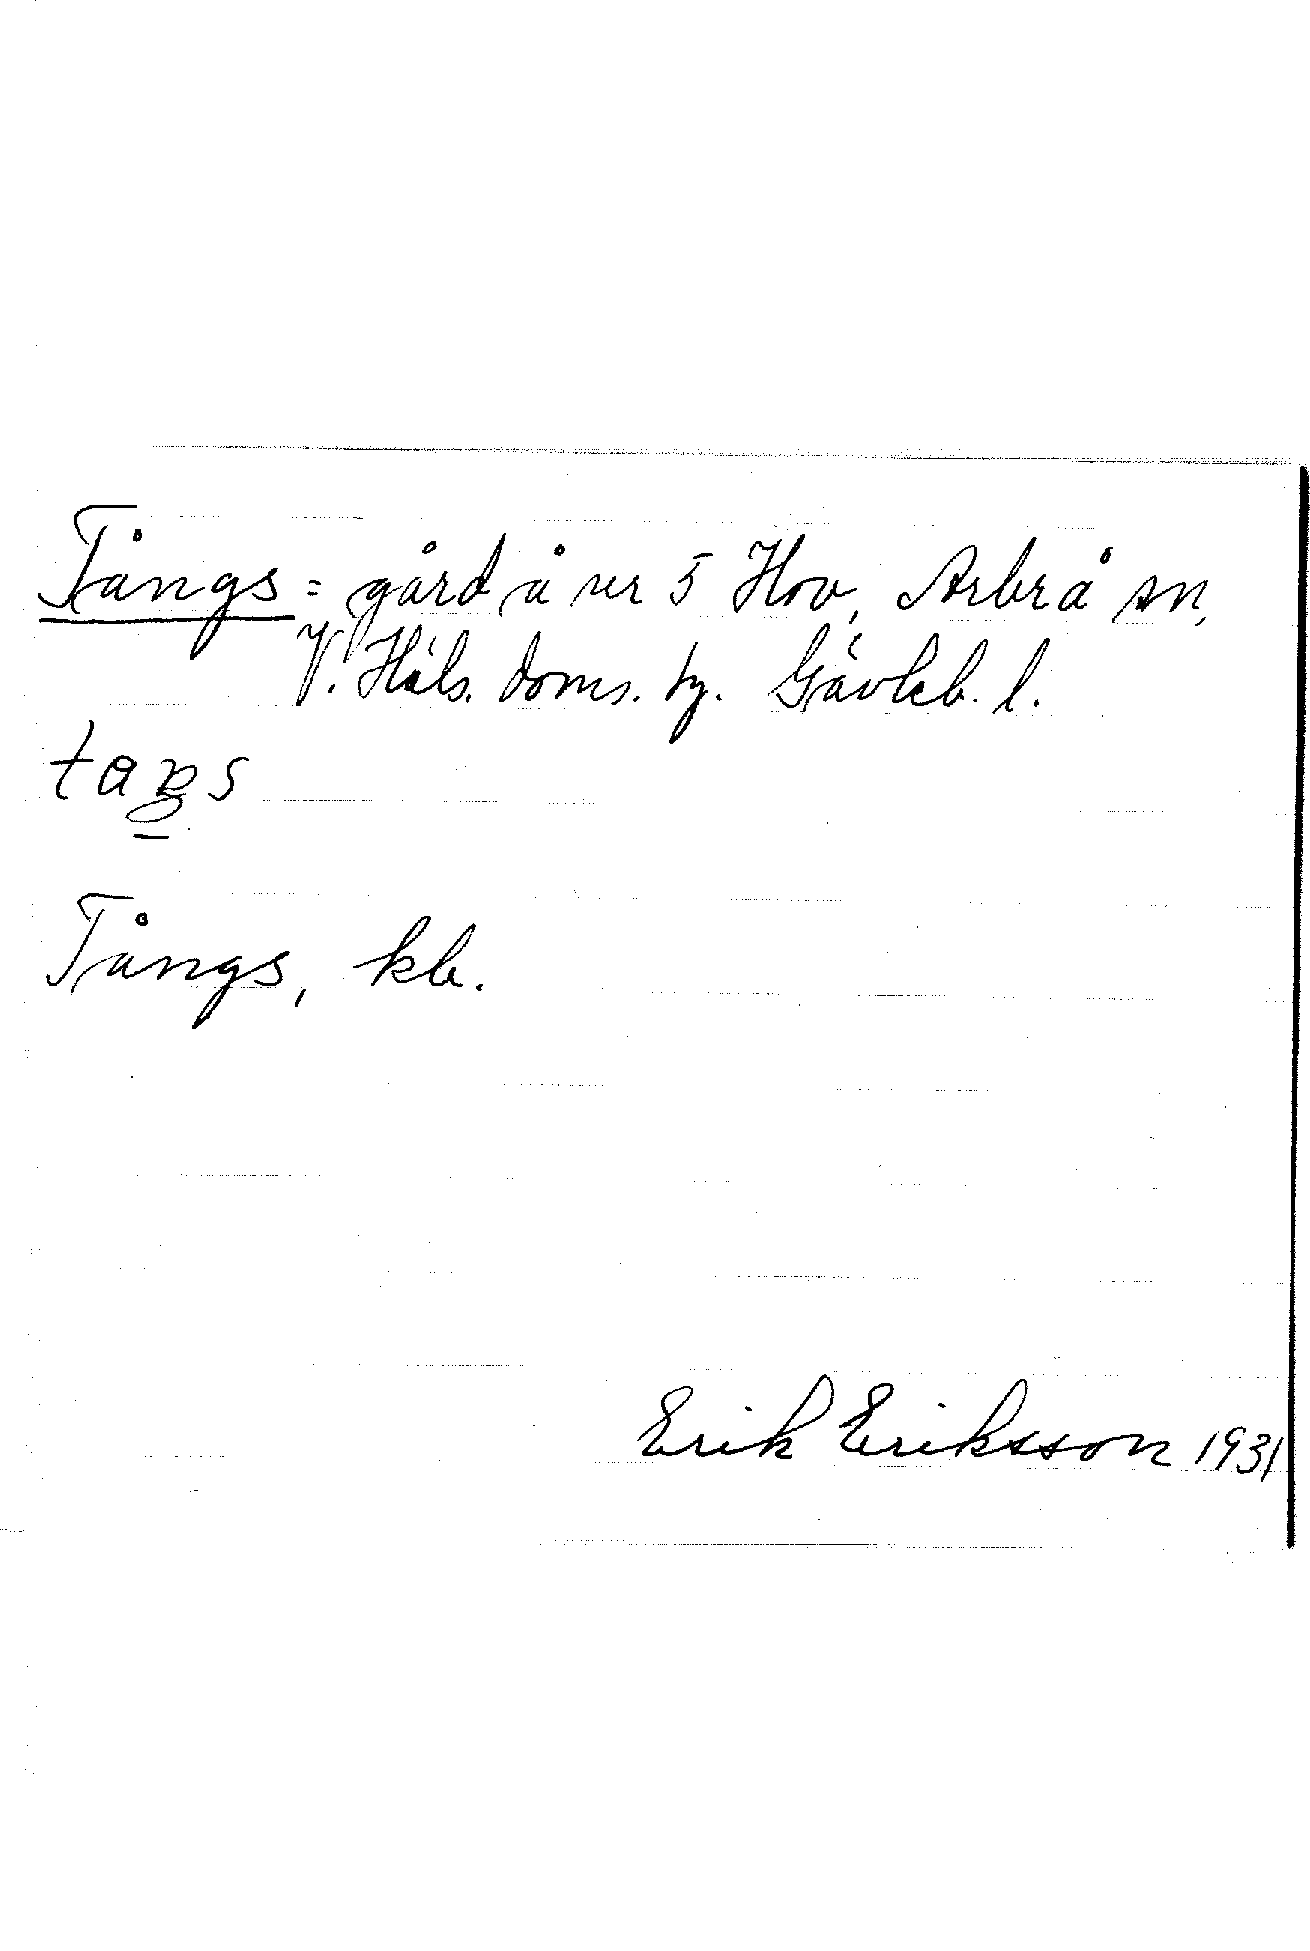 Tångs = gård å nr 5 Hov, Arbrå sn,
V. Häls. doms. hg. Gävleb. l.
Tångs, kb.
Erik Eriksson 1931